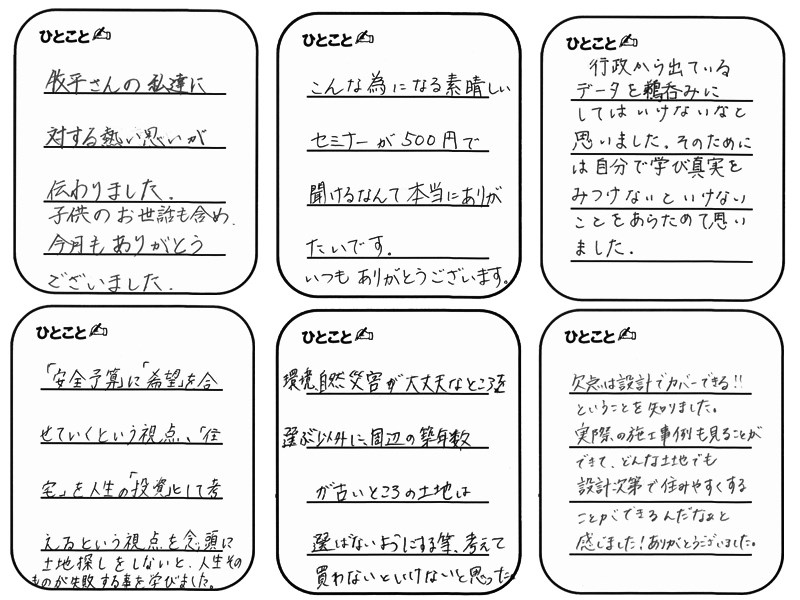 ひとこと
牧平さんの私達に
対する熱い思いが
伝わりました.
子供のお世話も含め、
今月もありがとう
ございました.
ひとこと
こんな為になる素晴しい
セミナーが500円で
聞けるなんて本当にありが
たいです.
いつもありがとうございます。
ひとこと
行政から出ている
データを鵜呑みに
してはいけないなと
思いました.そのために
は自分で学び真実を
みつけないといけない
ことをあらためて思い
ました.
ひとこと
「安全予算」に「希望」を合
せていくという視点、「住
宅」を人生の「投資」として考
えるという視点を念頭に
土地探しをしないと、人生その
ものが失敗する事を学びました。
ひとこと
環境、自然災害が大丈夫なところを
選ぶ以外に、周辺の築年数
が古いところの土地は
選ばないようにする等、考えて
買わないといけないと思った。
ひとこと
欠点は設計でカバーできる!!
ということを知りました。
実際の施工事例も見ることが
できて、どんな土地でも
設計次第で住みやすくする
ことができるんだなぁと
感じました!ありがとうございました。